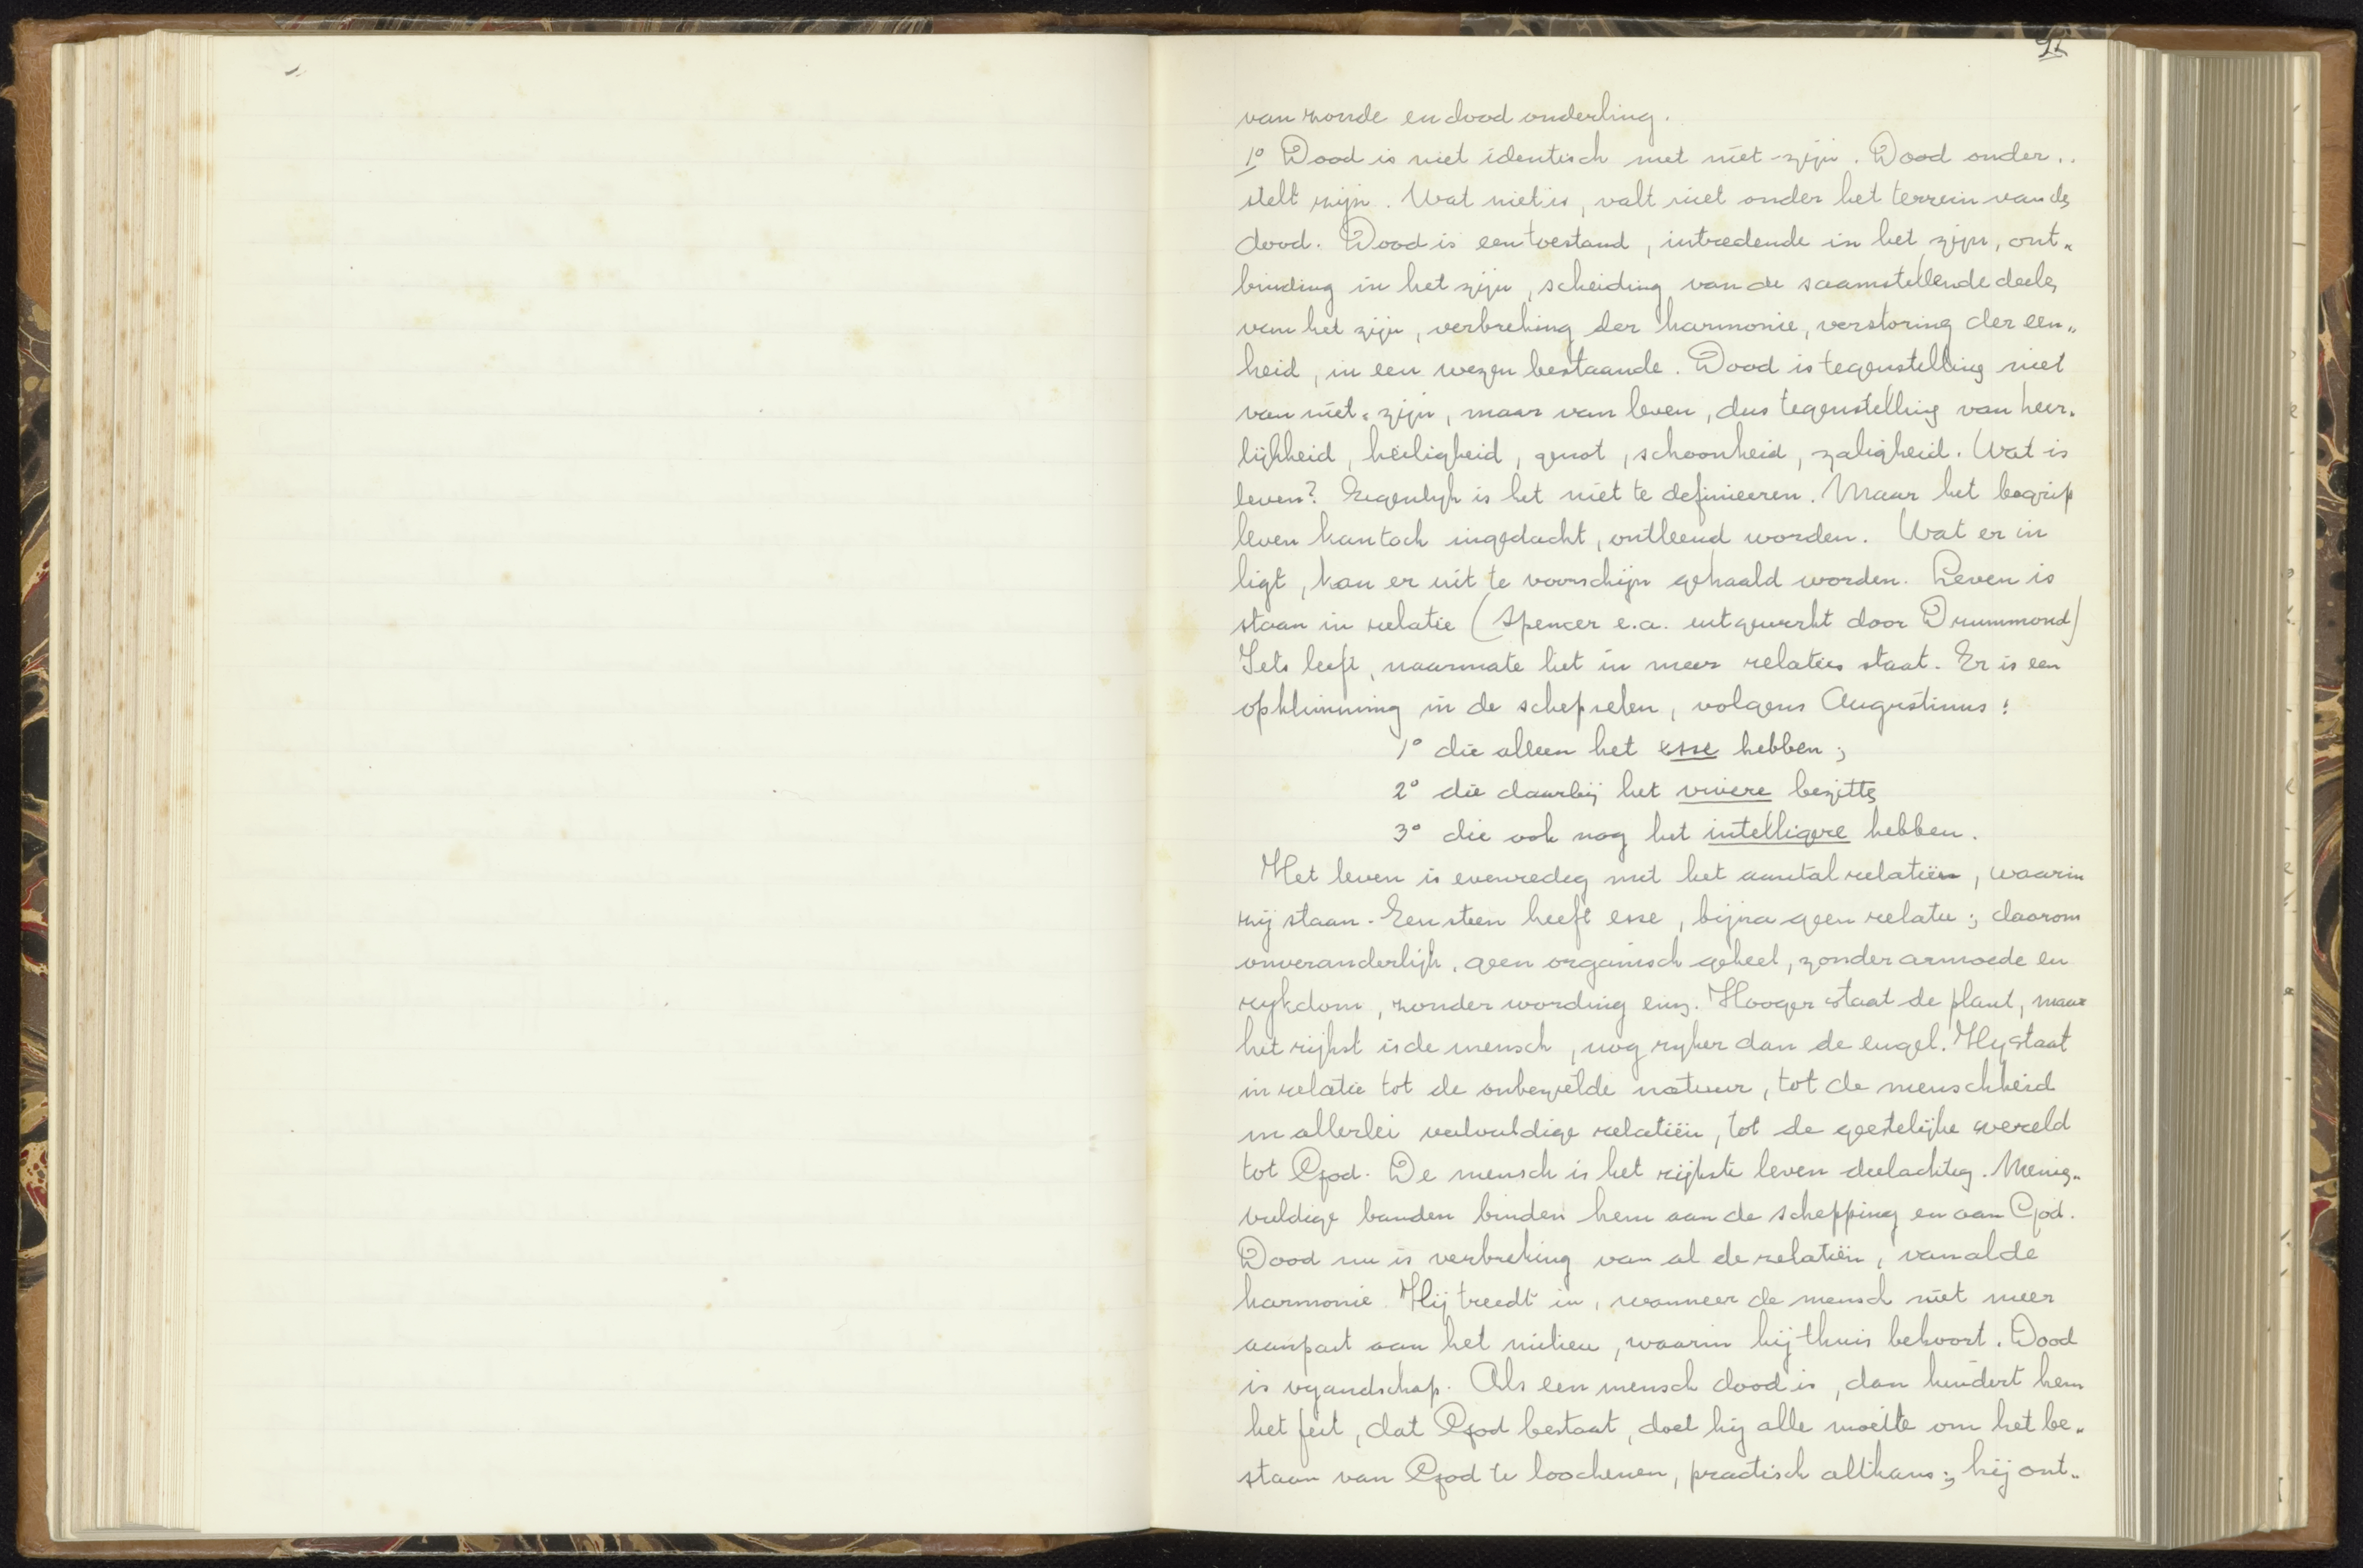 van zonde en dood onderling.
1º Dood is niet identisch met niet-zijn. Dood onder„
stelt zijn. Wat niet is, valt niet onder het terrein van de
dood. Dood is een toestand, intredende in het zijn, ont„
binding in het zijn, scheiding van de saamstellende deelen
van het zijn, verbreking der harmonie, verstoring der een„
heid, in een wezen bestaande. Dood is tegenstelling niet
van niet-zijn, maar van leven, dus tegenstelling van heer„
lijkheid, heiligheid, genot, schoonheid, zaligheid. Wat is
leven? Eigenlijk is het niet te definieeren. Maar het begrip
leven kan toch ingedacht, ontleend worden. Wat er in
ligt, kan er uit te voorschijn gehaald worden. Leven is
staan in relatie (Spencer e.a. uitgewerkt door Drummond)
Iets leeft, naarmate het in meer relaties staat. Er is een
opklimming in de schepselen, volgens Augustinus:
1º die alleen het esse hebben;
2º die daarbij het vivere bezitten
3º die ook nog het intelligere hebben.
Het leven is evenredig met het aantal relatiën, waarin
wij staan. Een steen heeft esse, bijna geen relatie; daarom
onveranderlijk, geen organisch geheel, zonder armoede en
rykdom, zonder wording enz. Hooger staat de plant, maar
het rijkst is de mensch, nog ryker dan de engel. Hy staat
in relatie tot de onbezielde natuur, tot de menschheid
in allerlei veelvuldige relatiën, tot de geestelijke wereld
tot God. De mensch is het rijkste leven deelachtig. Menig„
vuldige banden binden hem aan de schepping en aan God.
Dood nu is verbreking van al de relatiën, van al de
harmonie. Hij treedt in, wanneer de mensch niet meer
aanpast aan het milieu, waarin hij thuis behoort. Dood
is vyandschap. Als een mensch dood is, dan hindert hem
het feit, dat God bestaat, doet hij alle moeite om het be„
staan van God te loochenen, practisch althans; hij ont„